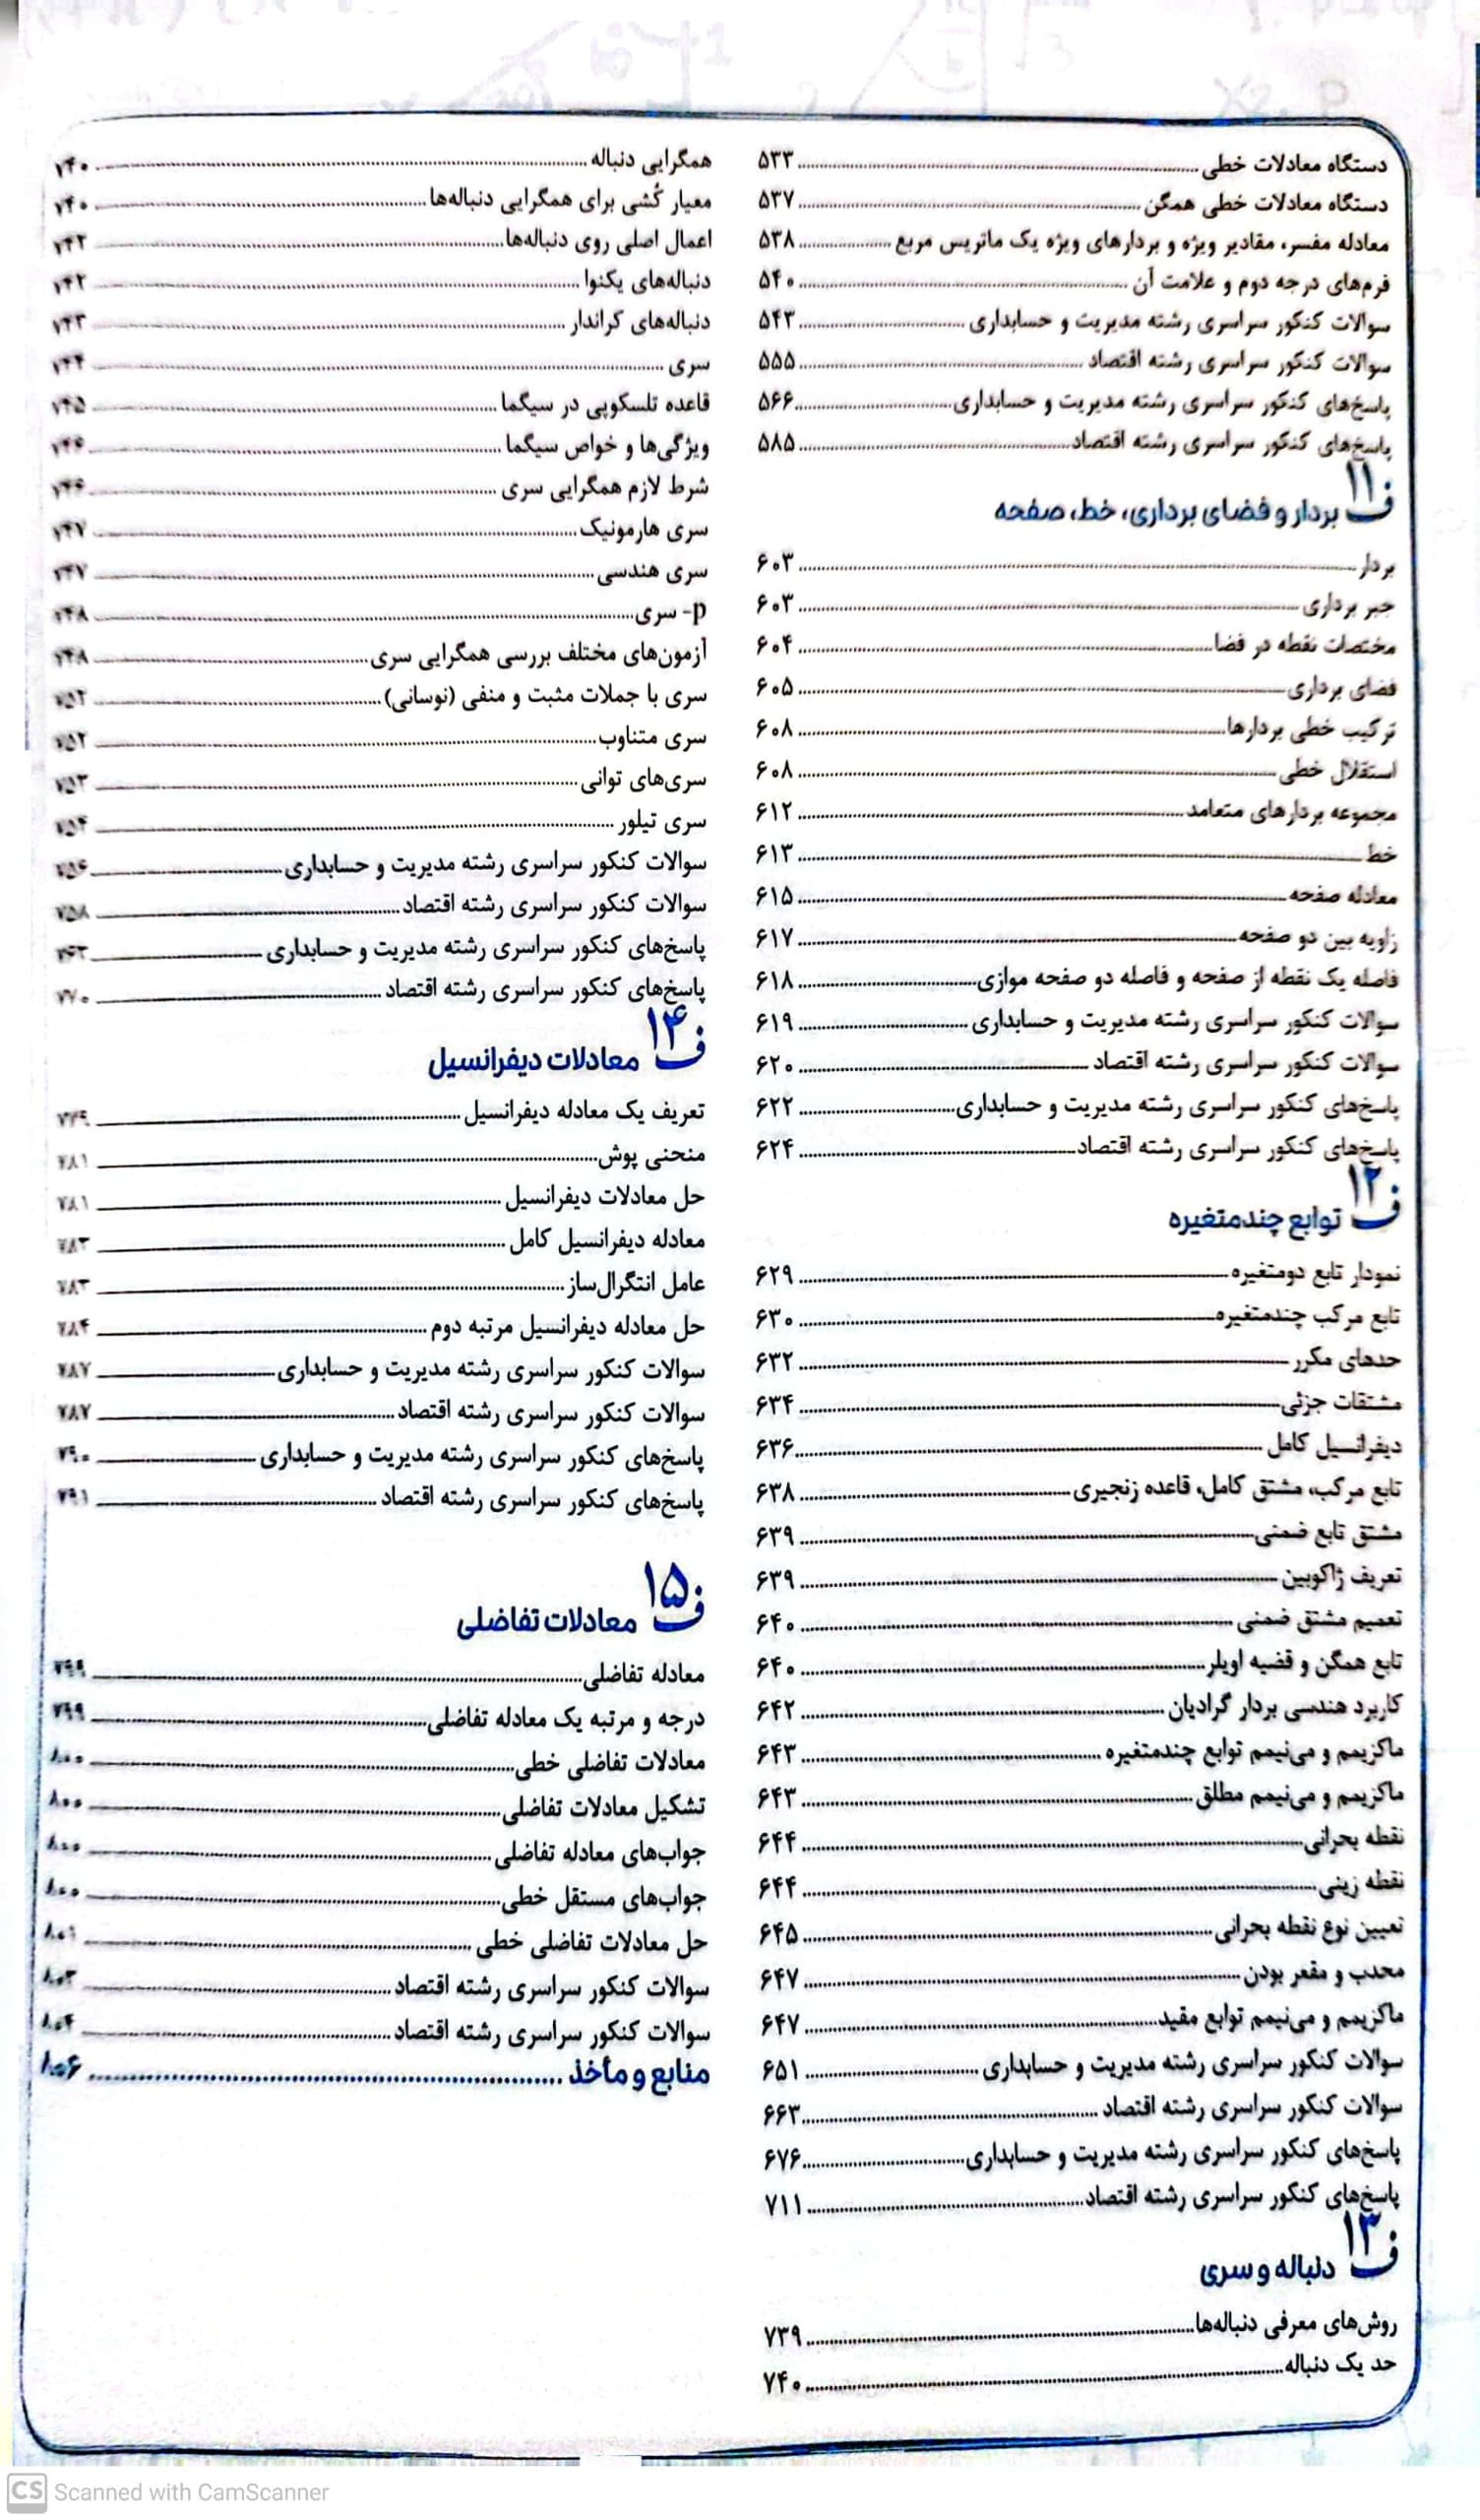 دستگاه معادلات خطی ... ۵۳۳
دستگاه معادلات خطی همگن ... ۵۳۷
معادله مفسر، مقادیر ویژه و بردارهای ویژه یک ماتریس مربع ... ۵۳۸
فرم‌های درجه دوم و علامت آن ... ۵۴۰
سوالات کنکور سراسری رشته مدیریت و حسابداری ... ۵۴۳
سوالات کنکور سراسری رشته اقتصاد ... ۵۵۵
پاسخ‌های کنکور سراسری رشته مدیریت و حسابداری ... ۵۶۶
پاسخ‌های کنکور سراسری رشته اقتصاد ... ۵۸۵
ف ۱۱ بردار و فضای برداری، خط، صفحه
بردار ... ۶۰۳
جبر برداری ... ۶۰۳
مختصات نقطه در فضا ... ۶۰۴
فضای برداری ... ۶۰۵
ترکیب خطی بردارها ... ۶۰۸
استقلال خطی ... ۶۰۸
مجموعه بردارهای متعامد ... ۶۱۲
خط ... ۶۱۳
معادله صفحه ... ۶۱۵
زاویه بین دو صفحه ... ۶۱۷
فاصله یک نقطه از صفحه و فاصله دو صفحه موازی ... ۶۱۸
سوالات کنکور سراسری رشته مدیریت و حسابداری ... ۶۱۹
سوالات کنکور سراسری رشته اقتصاد ... ۶۲۰
پاسخ‌های کنکور سراسری رشته مدیریت و حسابداری ... ۶۲۲
پاسخ‌های کنکور سراسری رشته اقتصاد ... ۶۲۴
ف ۱۲ توابع چندمتغیره
نمودار تابع دومتغیره ... ۶۲۹
تابع مرکب چندمتغیره ... ۶۳۰
حدهای مکرر ... ۶۳۲
مشتقات جزئی ... ۶۳۴
دیفرانسیل کامل ... ۶۳۶
تابع مرکب، مشتق کامل، قاعده زنجیری ... ۶۳۸
مشتق تابع ضمنی ... ۶۳۹
تعریف ژاکوبین ... ۶۳۹
تعمیم مشتق ضمنی ... ۶۴۰
تابع همگن و قضیه اویلر ... ۶۴۰
کاربرد هندسی بردار گرادیان ... ۶۴۲
ماکزیمم و می‌نیمم توابع چندمتغیره ... ۶۴۳
ماکزیمم و می‌نیمم مطلق ... ۶۴۳
نقطه بحرانی ... ۶۴۴
نقطه زینی ... ۶۴۴
تعیین نوع نقطه بحرانی ... ۶۴۵
محدب و مقعر بودن ... ۶۴۷
ماکزیمم و می‌نیمم توابع مقید ... ۶۴۷
سوالات کنکور سراسری رشته مدیریت و حسابداری ... ۶۵۱
سوالات کنکور سراسری رشته اقتصاد ... ۶۶۳
پاسخ‌های کنکور سراسری رشته مدیریت و حسابداری ... ۶۷۶
پاسخ‌های کنکور سراسری رشته اقتصاد ... ۷۱۱
ف ۱۳ دنباله و سری
روش‌های معرفی دنباله‌ها ... ۷۳۹
حد یک دنباله ... ۷۴۰
همگرایی دنباله ... ۷۴۰
معیار کُشی برای همگرایی دنباله‌ها ... ۷۴۰
اعمال اصلی روی دنباله‌ها ... ۷۴۲
دنباله‌های یکنوا ... ۷۴۲
دنباله‌های کراندار ... ۷۴۳
سری ... ۷۴۴
قاعده تلسکوپی در سیگما ... ۷۴۵
ویژگی‌ها و خواص سیگما ... ۷۴۶
شرط لازم همگرایی سری ... ۷۴۶
سری هارمونیک ... ۷۴۷
سری هندسی ... ۷۴۷
p- سری ... ۷۴۸
آزمون‌های مختلف بررسی همگرایی سری ... ۷۴۸
سری با جملات مثبت و منفی (نوسانی) ... ۷۵۲
سری متناوب ... ۷۵۲
سری‌های توانی ... ۷۵۳
سری تیلور ... ۷۵۴
سوالات کنکور سراسری رشته مدیریت و حسابداری ... ۷۵۶
سوالات کنکور سراسری رشته اقتصاد ... ۷۵۸
پاسخ‌های کنکور سراسری رشته مدیریت و حسابداری ... ۷۶۳
پاسخ‌های کنکور سراسری رشته اقتصاد ... ۷۷۰
ف ۱۴ معادلات دیفرانسیل
تعریف یک معادله دیفرانسیل ... ۷۷۹
منحنی پوش ... ۷۸۱
حل معادلات دیفرانسیل ... ۷۸۱
معادله دیفرانسیل کامل ... ۷۸۳
عامل انتگرال‌ساز ... ۷۸۳
حل معادله دیفرانسیل مرتبه دوم ... ۷۸۴
سوالات کنکور سراسری رشته مدیریت و حسابداری ... ۷۸۷
سوالات کنکور سراسری رشته اقتصاد ... ۷۸۷
پاسخ‌های کنکور سراسری رشته مدیریت و حسابداری ... ۷۹۰
پاسخ‌های کنکور سراسری رشته اقتصاد ... ۷۹۱
ف ۱۵ معادلات تفاضلی
معادله تفاضلی ... ۷۹۹
درجه و مرتبه یک معادله تفاضلی ... ۷۹۹
معادلات تفاضلی خطی ... ۸۰۰
تشکیل معادلات تفاضلی ... ۸۰۰
جواب‌های معادله تفاضلی ... ۸۰۰
جواب‌های مستقل خطی ... ۸۰۰
حل معادلات تفاضلی خطی ... ۸۰۱
سوالات کنکور سراسری رشته اقتصاد ... ۸۰۳
سوالات کنکور سراسری رشته اقتصاد ... ۸۰۴
منابع و مأخذ ... ۸۰۶
CS Scanned with CamScanner